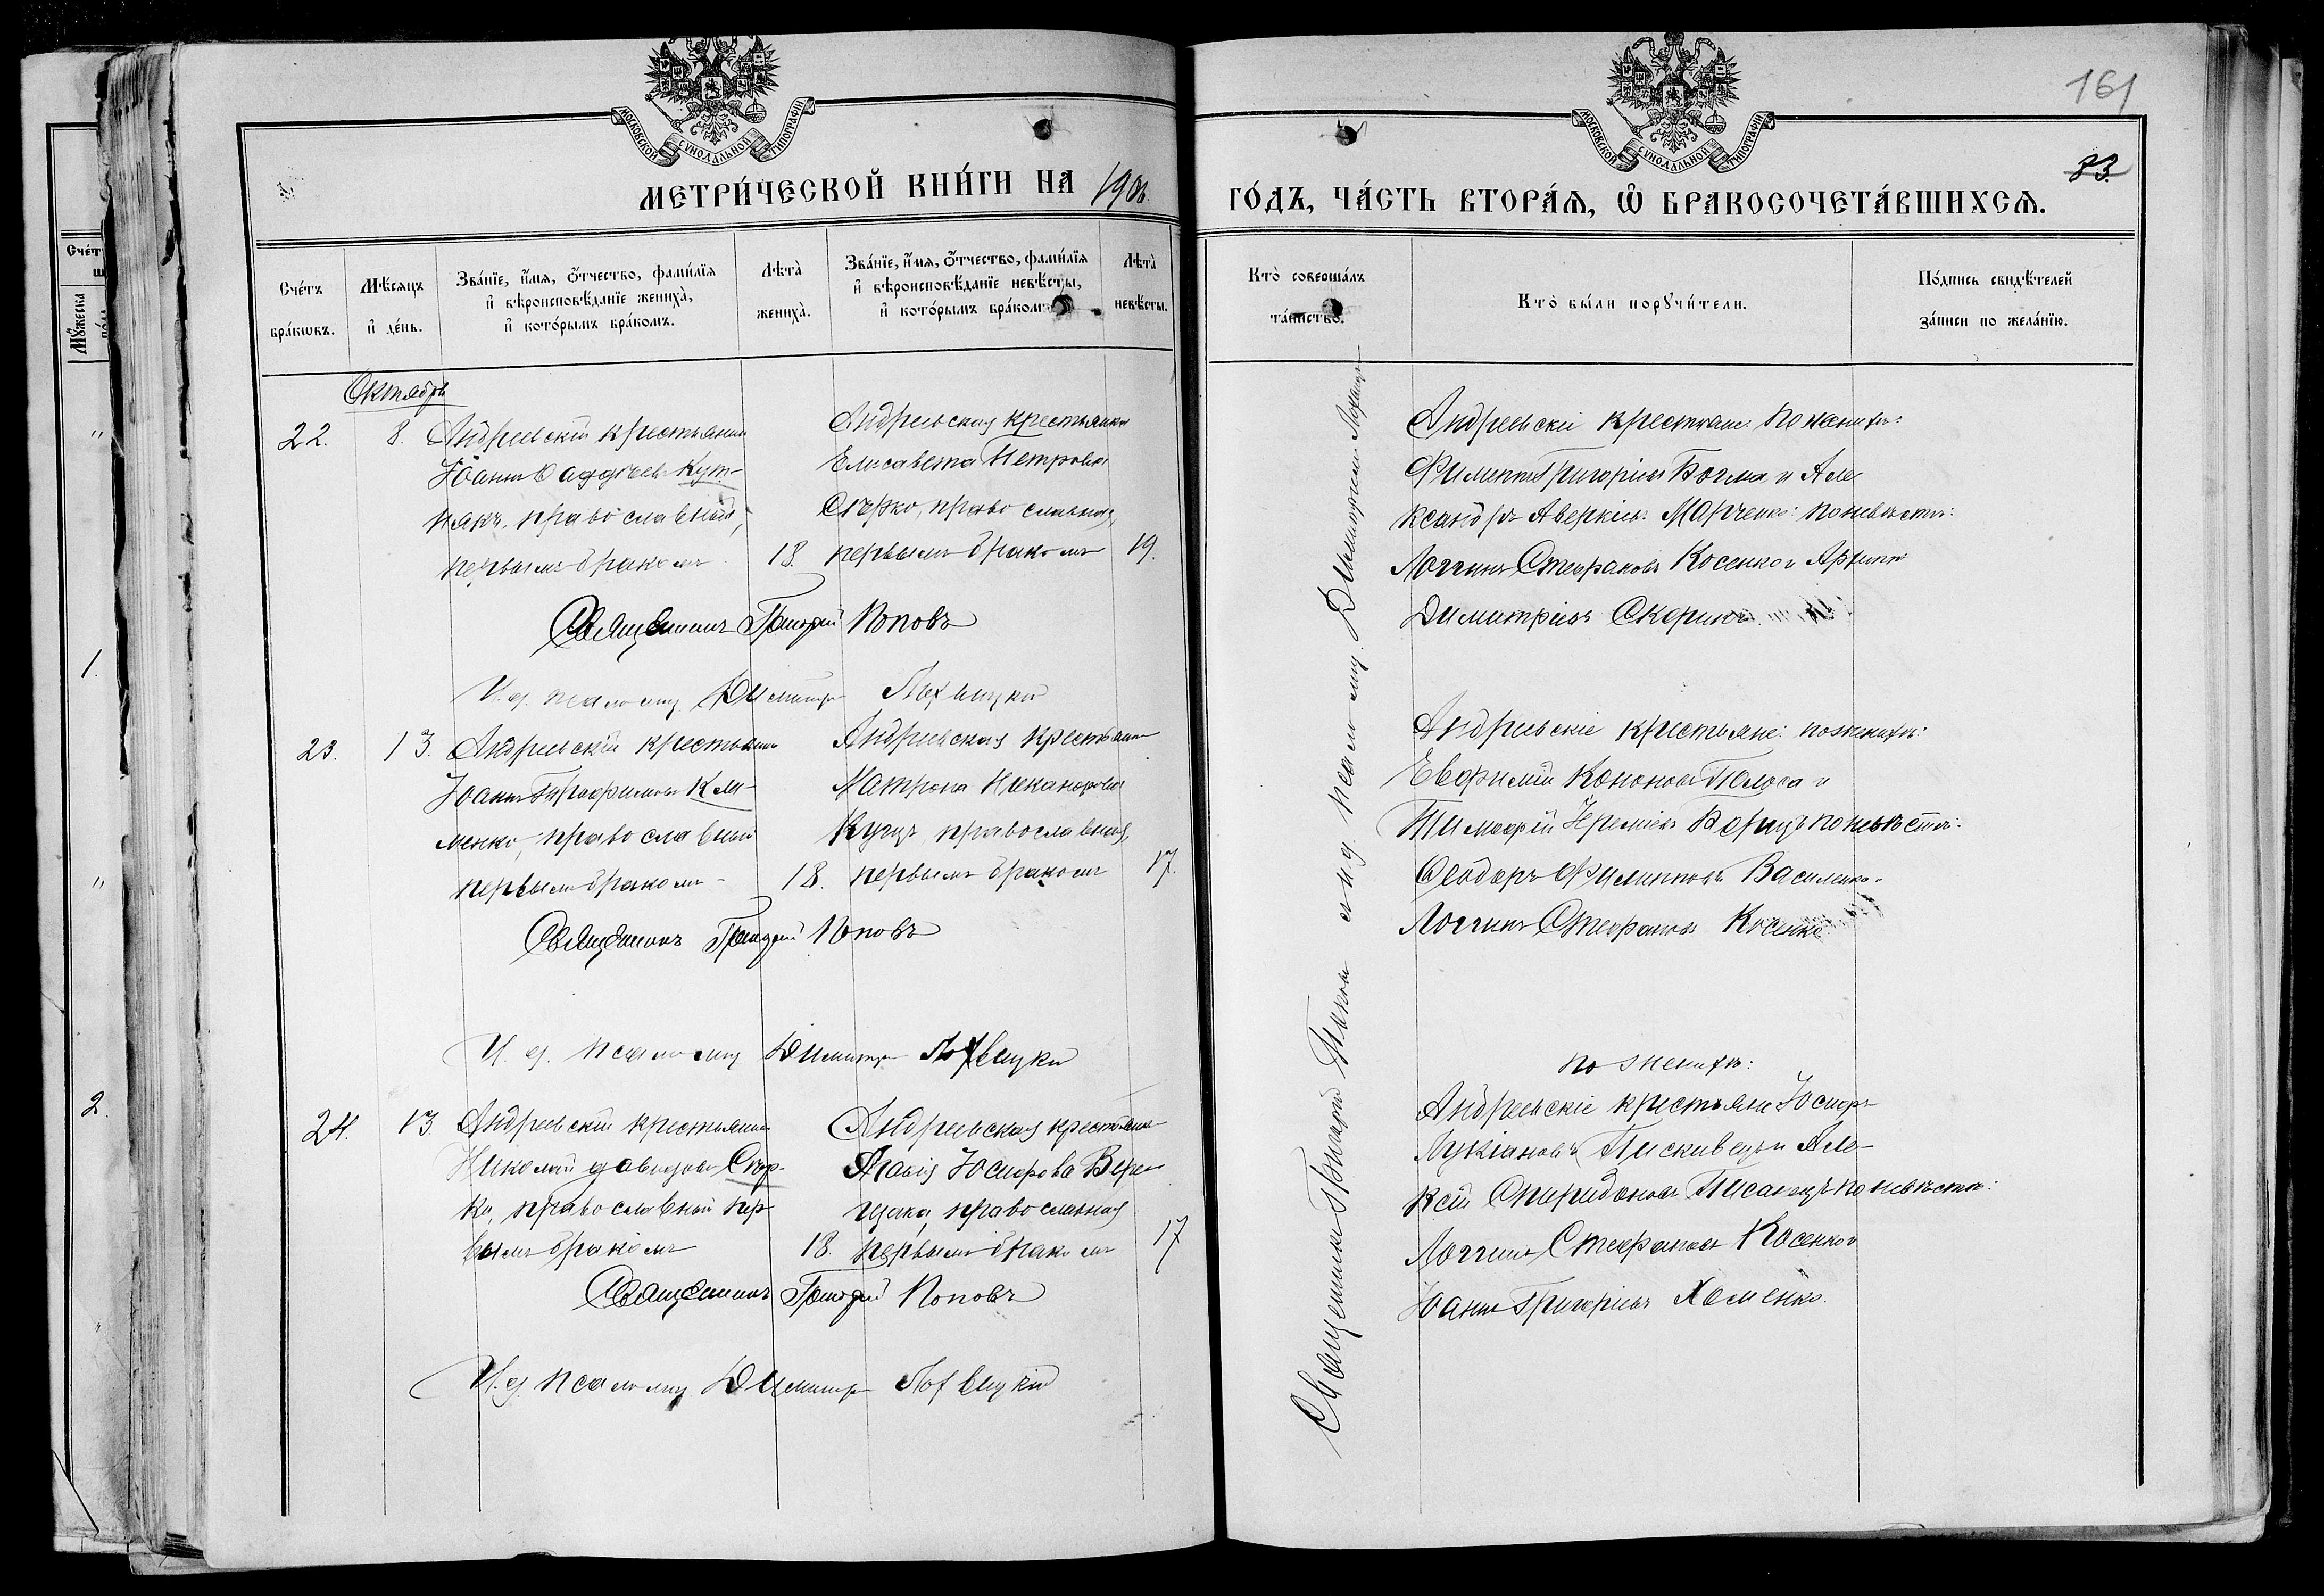 161
83
МОСКОВСКОЙ СѴНОДАЛЬНОЙ ТИПОГРАФІИ
МОСКОВСКОЙ СѴНОДАЛЬНОЙ ТИПОГРАФІИ
МЕТРИ́ЧЕСКОЙ КНИ́ГИ НА 190
ГО́ДЪ, ЧА́СТЬ ВТОРА́Я, Ѿ БРАКОСОЧЕТА́ВШИХСЯ.
Сче́тъ бра́кѡвъ.
Мѣ́сяцъ и҆ де́нь.
Зва́нїе, и҆́мя, ѻ҆́тчество, фами́лїя
и҆ вѣроисповѣ́данїе жениха̀,
и҆ кото́рымъ бра́комъ.
Лѣта̀ жениха̀.
Зва́нїе, и҆́мя, ѻ҆́тчество, фами́лїя
и҆ вѣроисповѣ́данїе невѣ́сты,
и҆ кото́рымъ бра́комъ
Лѣта̀ невѣ́сты.
Кто̀ соверша́лъ та́инство.
Кто̀ бы́ли порꙋчи́тели.
По́дпись свидѣ́телей
за́писи по жела́нїю.
Октябрь
22. 8. Андреевскій крестьянинъ
Іоаннъ Ѳаддѣевъ Кут-
някъ, православный,
первымъ бракомъ 18.
Андреевская крестьянка
Елисавета Петрова
Сѣрко, православная,
первымъ бракомъ 19.
Андреевскіе крестьяне: по женихѣ:
Филиппъ Григоріевъ Богма и Але-
ксандръ Аверкіевъ Марченко: по невѣстѣ:
Логгинъ Стефановъ Косенко и Архипъ
Димитріевъ Скорикъ
Священникъ Григорій Поповъ
И. д. псаломщ. Димитр. Лохвицкій
23. 13. Андреевскій крестьянинъ
Іоаннъ Трофимовъ Кли-
менко, православный
первымъ бракомъ 18.
Андреевская крестьянка
Матрона Никанорова
Куцъ, православная,
первымъ бракомъ 17.
Андреевскіе крестьяне: по женихѣ:
Евфимій Кононовъ Полоса и
Тимофей Іереміевъ Борецъ по невѣстѣ:
Ѳеодоръ Филипповъ Василенко и
Логгинъ Стефановъ Косенко
Священникъ Григорій Поповъ
И. д. псаломщ. Димитр. Лохвицкій
24. 13. Андреевскій крестьянинъ
Николай Давидовъ Сѣр-
ко, православный пер-
вымъ бракомъ 18.
Андреевская крестьянка
Агаѳія Іосифова Вере-
щака, православная
первымъ бракомъ 17
по женихѣ:
Андреевскіе крестьяне Іосифъ
Лукіановъ Пискивецъ и Але-
ксій Спиридоновъ Писанецъ по невѣстѣ:
Логгинъ Стефановъ Косенко и
Іоаннъ Григоріевъ Хоменко.
Священникъ Григорій Поповъ
И. д. псаломщ. Димитр. Лохвицкій
Священникъ Григорій Поповъ и и. д. псаломщ. Димитрій Лохвицкій
Сче́т
Мꙋ́жеска
1.
2.